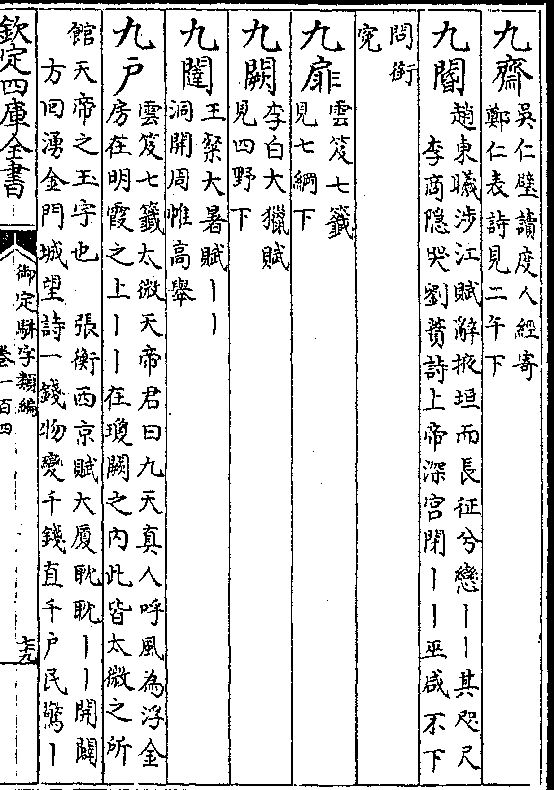 九齋
吳仁璧讀度人經寄
鄭仁表詩見二午下
九閽
趙東曦涉江賦辭掖垣而長征兮戀丨丨其咫尺
李商隱哭劉蕡詩上帝深宮閉丨丨巫咸不下
問銜
寃
九扉
雲笈七籤
見七綱下
九闕
李白大獵賦
見四野下
九闥
王粲大暑賦丨丨
洞開周帷高舉
九戶
雲笈七籤太微天帝君曰九天真人呼風為浮金
房在明霞之上丨丨在瓊闕之内此皆太微之所
館天帝之玉宇也 張衡西京賦大廈耽耽丨丨開闢
方回湧金門城望詩一錢物變千錢直千戶民驚丨
欽定四庫全書
御定駢字類編
卷一百四
七九